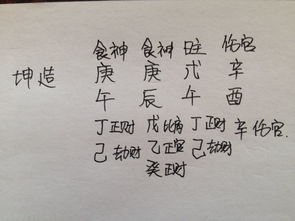 食神 食神 日主 伤官
坤造 庚 庚 戊 辛
午 辰 午 酉
丁正财 戊比肩 丁正财 辛伤官
己劫财 乙正官 己劫财
癸正财